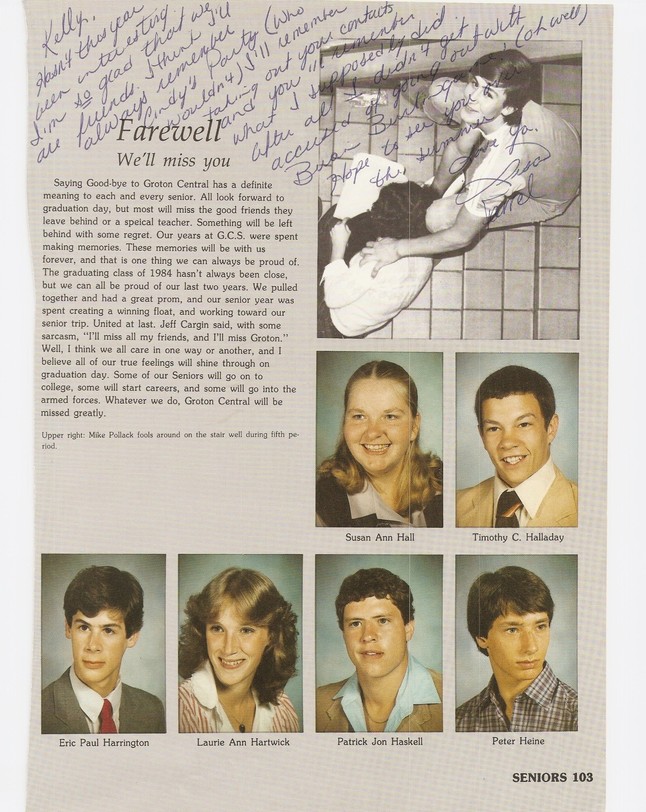 Kelly,
Hasn't this year
been interesting.
I'm so glad that we'll
are friends. I think
always remember
Cindy's Party (Who
wouldn't) I'll remember
taking out your contacts
and you'll remember
what I supposedly did
After all I didn't get with
accused of going out
Brian (oh well)
Hope to see you over
the summer
Love Ya.
Farewell
We'll miss you
Saying Good-bye to Groton Central has a definite
meaning to each and every senior. All look forward to
graduation day, but most will miss the good friends they
leave behind or a speical teacher. Something will be left
behind with some regret. Our years at G.C.S. were spent
making memories. These memories will be with us
forever, and that is one thing we can always be proud of.
The graduating class of 1984 hasn't always been close,
but we can all be proud of our last two years. We pulled
together and had a great prom, and our senior year was
spent creating a winning float, and working toward our
senior trip. United at last. Jeff Cargin said, with some
sarcasm, "I'll miss all my friends, and I'll miss Groton."
Well, I think we all care in one way or another, and I
believe all of our true feelings will shine through on
graduation day. Some of our Seniors will go on to
college, some will start careers, and some will go into the
armed forces. Whatever we do, Groton Central will be
missed greatly.
Upper right: Mike Pollack fools around on the stair well during fifth pe-
riod.
Susan Ann Hall
Timothy C. Halladay
Eric Paul Harrington
Laurie Ann Hartwick
Patrick Jon Haskell
Peter Heine
SENIORS 103